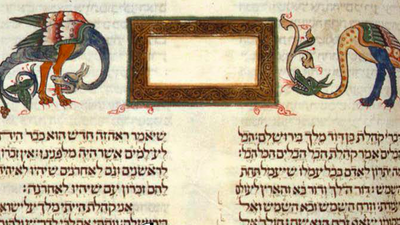 דברי קהלת בן דוד מלך בירושלם הבל
קהלת הבל הבלים הכל הבל
יתרון לאדם בכל עמלו שיעמל תחת
השמש דור הלך ודור בא והארץ לעולם
השמש ובא השמש ואל
שיאמר ראה זה חדש הוא כבר היה
לעולמים אשר היה מלפננו אין זכרון
לראשנים וגם לאחרנים שיהיו לא יהיה
להם זכרון עם שיהיו לאחרנה
אני קהלת הייתי מלך על ישרא